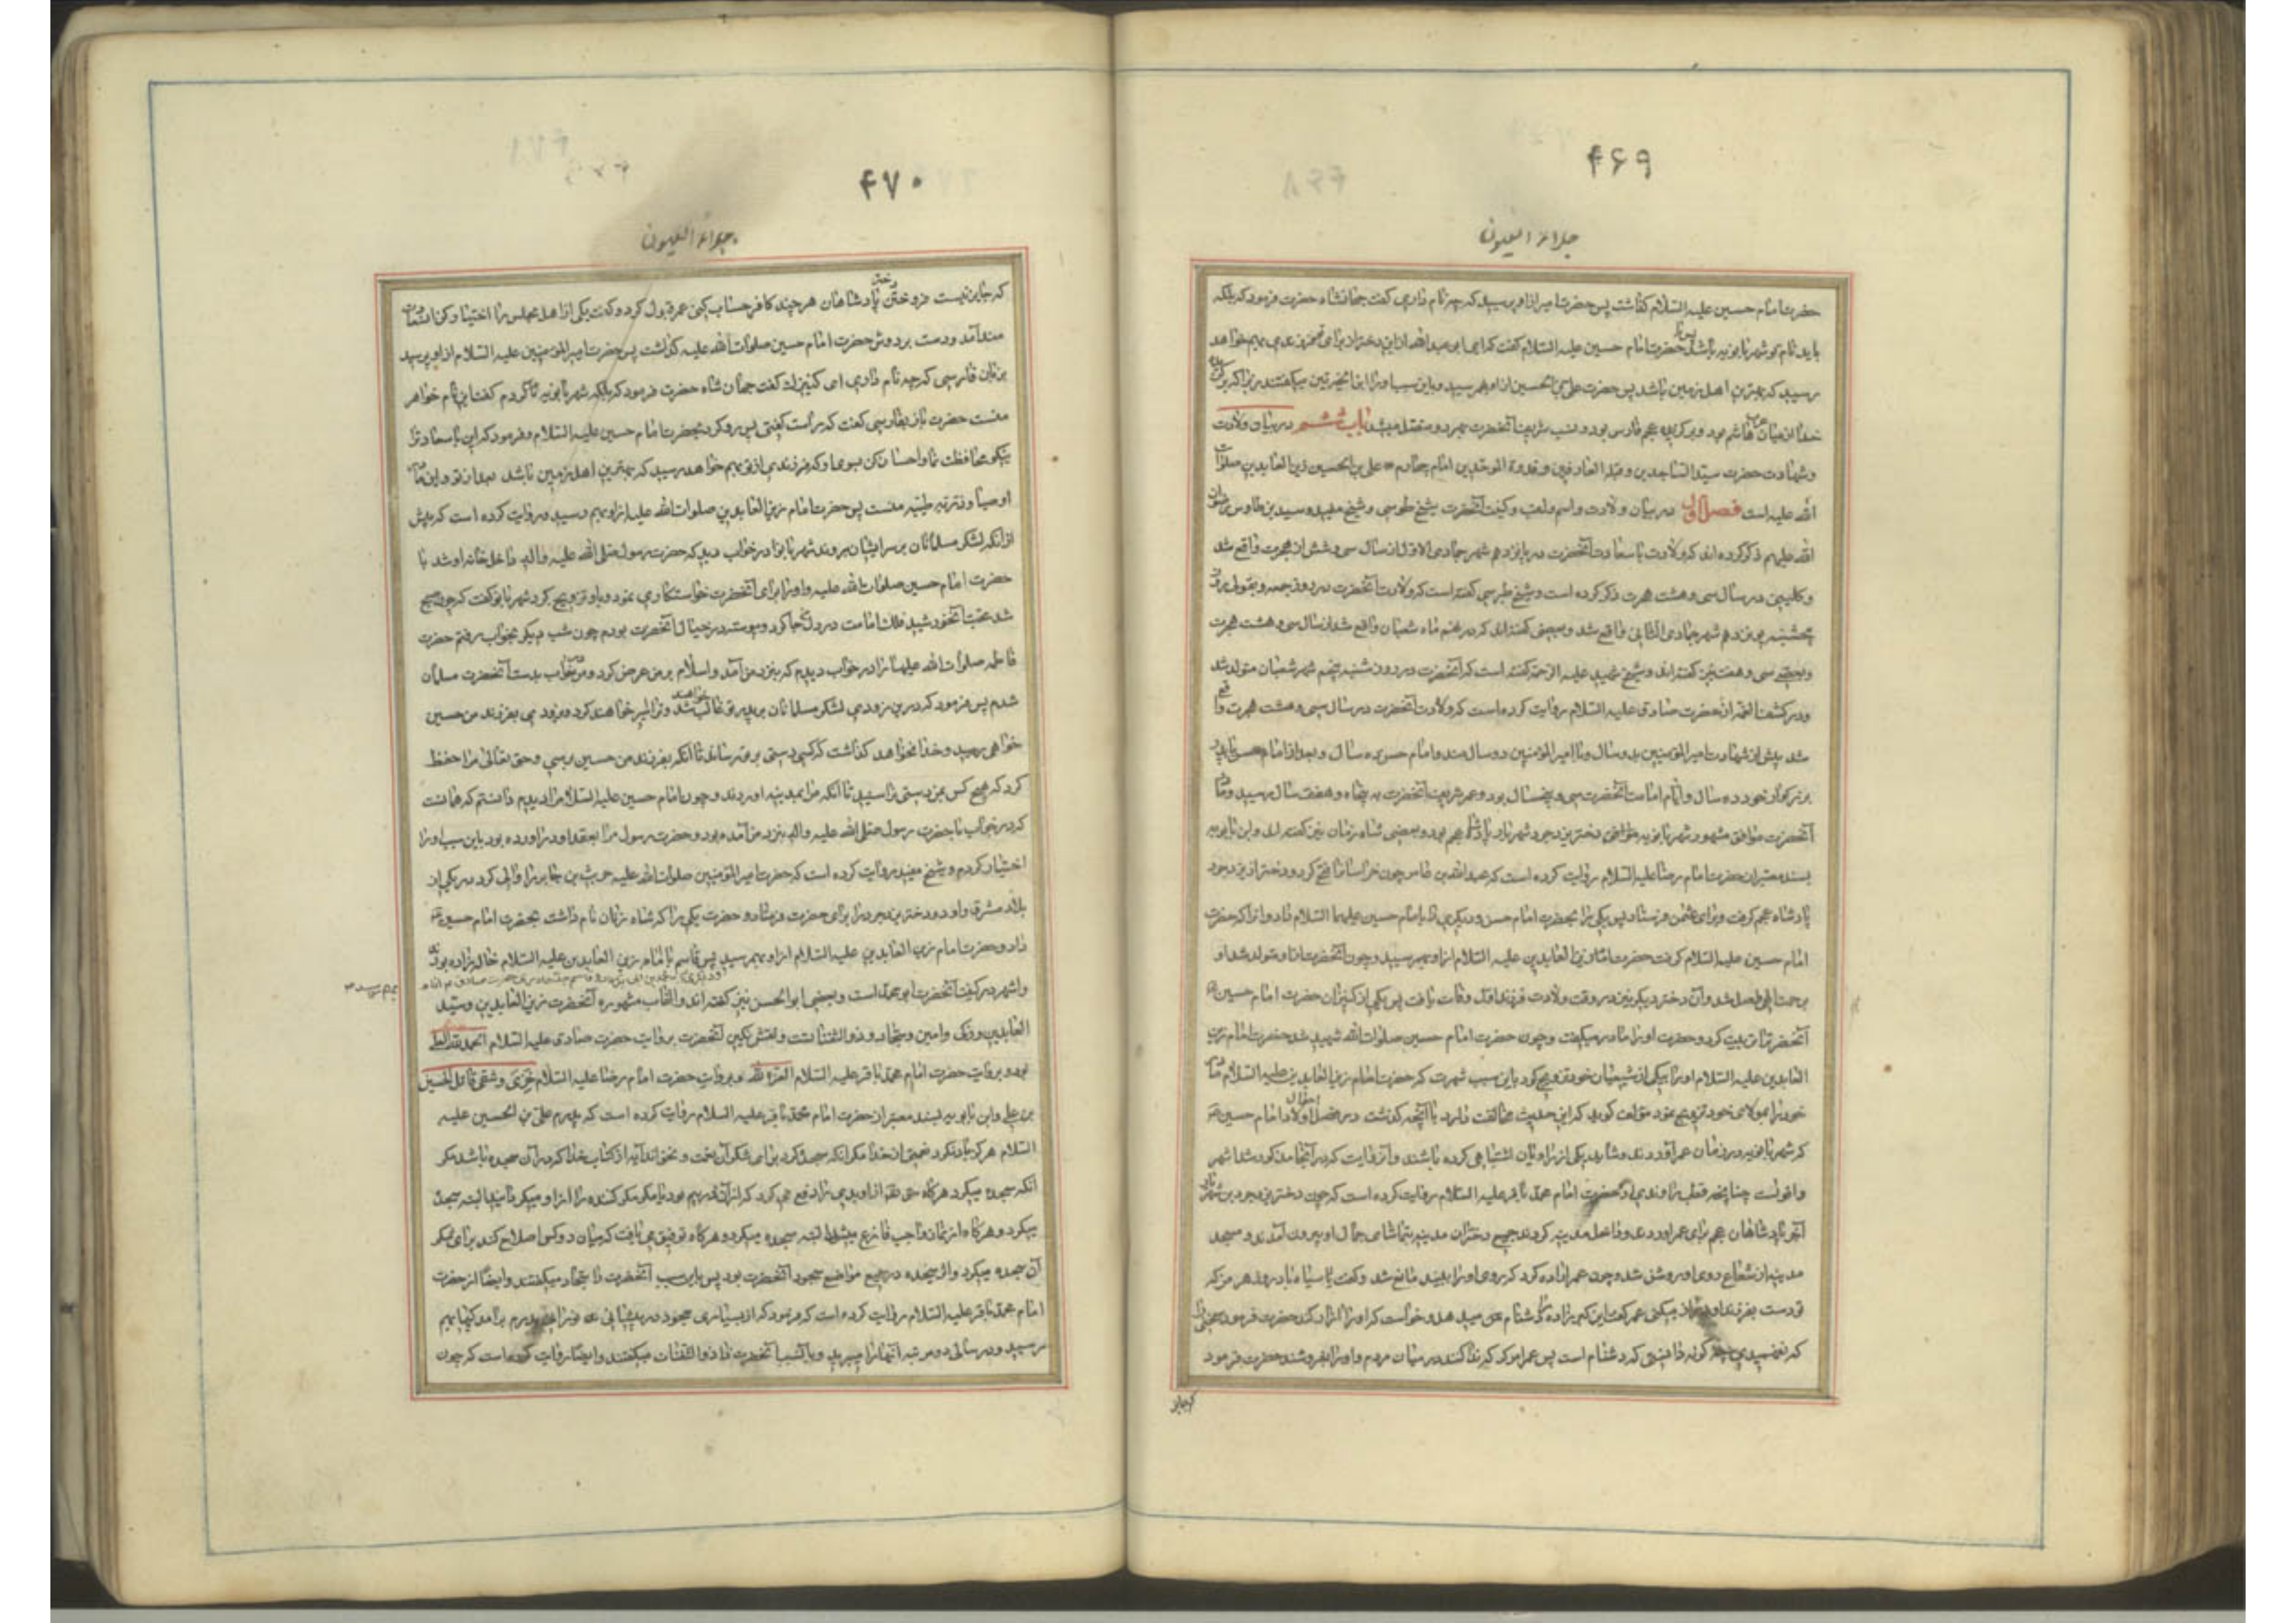 ۴۶۹
جلاء العیون
حضرت امام حسین علیه السّلام گذاشت پس حضرت امیر از او پرسید که چه نام داری گفت جهانشاه حضرت فرمود که بلکه
باید نام تو شهربانویه باشد پس با حضرت امام حسین علیه السّلام گفت که ای ابی عبد الله از این دختر از برای تو فرزندی بهم خواهد
رسید که بهترین اهل زمین باشد پس حضرت علی بن الحسین از او بهم رسید و باین سبب او را ابن الخیرتین میگفتند زیرا که برگزیده
خدا از میان عرب هاشم بود و برگزیده عجم فارس بود و نسب شریف آنحضرت بهر دو متصل میشد باب ششم در بیان ولادت
و شهادت حضرت سیّد الساجدین و قبلة العارفین و قدوة الموحّدین امام چهارم علی بن الحسین زین العابدین صلوات
الله علیه است فصل اوّل در بیان ولادت و اسم و لقب و کنیت آنحضرت شیخ طوسی و شیخ مفید و سید بن طاوس رضوان
الله علیهم ذکر کرده اند که ولادت با سعادت آنحضرت در پانزدهم شهر جمادی الاوّل از سال سی و شش از هجرت واقع شد
و کلینی در سال سی و هشت هجرت ذکر کرده است و شیخ طبرسی گفته است که ولادت آنحضرت در روز جمعه و بقولی روز
پنجشنبه پانزدهم شهر جمادی الثانی واقع شد و بعضی گفته اند که در نهم ماه شعبان واقع شد از سال سی و هشت هجرت
و بعضی سی و هفت نیز گفته اند و شیخ شهید علیه الرّحمه گفته است که آنحضرت در روز یکشنبه پنجم شهر شعبان متولد شد
و در کشف الغمّه از حضرت صادق علیه السّلام روایت کرده است که ولادت آنحضرت در سال سی و هشت هجرت واقع
شد پیش از شهادت امیر المؤمنین بدو سال و با امیر المؤمنین دو سال ماند و با امام حسن ده سال و بعد از امام حسن با پدر
بزرگوار خود ده سال و ایّام امامت آنحضرت سی و پنج سال بود و عمر شریف آنحضرت به پنجاه و هفت سال رسید و مادر
آنحضرت موافق مشهور شهربانویه دختر یزدجرد شهریار پادشاه عجم بود و بعضی شاه زنان نیز گفته اند و ابن بابویه
بسند معتبر از حضرت امام رضا علیه السّلام روایت کرده است که عبدالله بن عامر چون خراسان را فتح کرد دو دختر از یزدجرد
پادشاه عجم گرفت و برای عثمان فرستاد پس یکی را بحضرت امام حسن و دیگری را بامام حسین علیهما السّلام داد و آنرا که حضرت
امام حسین علیه السّلام گرفت حضرت امام زین العابدین علیه السّلام از او بهم رسید و چون آنحضرت از او متولد شد او
برحمت الهی واصل شد و آن دختر دیگر نیز در وقت ولادت فرزند اول وفات یافت پس یکی از کنیزان حضرت امام حسین
آنحضرت را تربیت کرد و حضرت او را مادر میگفت و چون حضرت امام حسین صلوات الله شهید شد حضرت امام زین
العابدین علیه السّلام او را بیکی از شیعیان خود تزویج کرد باین سبب شهرت کرد که حضرت امام زین العابدین علیه السلام مادر
خود را بمولای خود تزویج نمود مؤلف گوید که این حدیث مخالفت دارد با آنچه گذشت در فصل احوال اولاد امام حسین
که شهربانویه در زمان عمر آوردند و شاید یکی از راویان اشتباهی کرده باشند و آن روایت که در آنجا مذکور شد اشهر
و اقویست چنانچه قطب راوندی از حضرت امام محمّد باقر علیه السّلام روایت کرده است که چون دختر یزدجرد بن شهریار
آخر پادشاهان عجم برای عمر آوردند و داخل مدینه کردند جمیع دختران مدینه بتماشای جمال او بیرون آمدند و مسجد
مدینه از شعاع روی او روشن شد و چون عمر اراده کرد که روی او را ببیند مانع شد و گفت سیاه باد روز هرمز که
تو دست بفرزند او دراز میکنی عمر گفت این گبرزاده مرا دشنام میدهد و خواست که او را آزار کند حضرت فرمود
که نفهمیدی چگونه دانستی که دشنام است پس عمر امر کرد که ندا کنند در میان مردم و او را بفروشند حضرت فرمود
که جایز
۴۷۰
جلاء العیون
که جایز نیست فروختن دختر پادشاهان هر چند کافر حساب کنی عمر قبول کرد و گفت یکی از اهل مجلس را اختیار کن
آمد و دست بر دوش حضرت امام حسین صلوات الله علیه گذاشت پس حضرت امیر المؤمنین علیه السّلام از او پرسید
بزبان فارسی که چه نام داری ای کنیزک گفت جهان شاه حضرت فرمود که بلکه شهربانویه نام کردم گفت این نام خواهر
منست حضرت باز بفارسی گفت که راست گفتی پس رو کرد بحضرت امام حسین علیه السّلام و فرمود که این با سعادت را
نیکو محافظت نما و احسان کن بسوی او که فرزندی از تو بهم خواهد رسید که بهترین اهل زمین باشد بعد از تو و این مادر
اوصیا و ذرّیّه طیّبه منست پس حضرت امام زین العابدین صلوات الله علیه از او بهم رسید و روایت کرده است که پیش
از آنکه لشکر مسلمانان بر سر ایشان بروند شهربانو در خواب دید که حضرت رسول صلی الله علیه و آله داخل خانه او شد با
حضرت امام حسین صلوات الله علیه و او را برای آنحضرت خواستگاری نمود و باو تزویج کرد شهربانو گفت که چون صبح
شد محبّت آنخورشید فلک امامت در دل جا کرد و پیوسته در خیال آنحضرت بودم چون شب دیگر بخواب رفتم حضرت
فاطمه صلوات الله علیها را در خواب دیدم که بنزد من آمد و اسلام بر من عرض کرد و من در خواب بدست آنحضرت مسلمان
شدم پس فرمود که در این زودی لشکر مسلمانان بر پدر تو غالب خواهند شد و ترا اسیر خواهند کرد و بزودی بفرزند من حسین
خواهی رسید و خدا نخواهد گذاشت که کسی دستی بر تو رساند تا آنکه بفرزند من حسین برسی و حق تعالی مرا حفظ
کرد که هیچ کس بمن دستی نرسانید تا آنکه مرا بمدینه آوردند و چون امام حسین علیه السّلام را دیدم دانستم که همانست
که در خواب با حضرت رسول صلی الله علیه و اله بنزد من آمده بود و حضرت رسول مرا بعقد او درآورده بود باین سبب او را
اختیار کردم و شیخ مفید روایت کرده است که حضرت امیر المؤمنین صلوات الله علیه حریث بن جابر را والی کرد در یکی از
بلاد مشرق و او دو دختر یزدجرد را برای حضرت فرستاد و حضرت یکی را که شاه زنان نام داشت بحضرت امام حسین
داد و حضرت امام زین العابدین علیه السّلام از او بهم رسید پس قاسم با امام زین العابدین علیه السّلام خاله زاده بودند
بهم رسید
و اشهر در کنیت آنحضرت ابو محمّد است و بعضی ابو الحسن نیز گفته اند و القاب مشهوره آنحضرت زین العابدین و سیّد
العابدین و زکی و امین و سجّاد و ذو الثفنات است و نقش نگین آنحضرت بروایت حضرت صادق علیه السّلام الحمد لله العلی
بود و بروایت حضرت امام محمّد باقر علیه السّلام العزة لله و بروایت حضرت امام رضا علیه السّلام خزی و شقی قاتل الحسین
بن علی و ابن بابویه بسند معتبر از حضرت امام محمّد باقر علیه السّلام روایت کرده است که پدرم علی بن الحسین علیه
السّلام هرگز یاد نکرد نعمتی از خدا مگر آنکه سجده کرد برای شکر آن نعمت و نخواند آیه از کتاب خدا که در آن سجده باشد مگر
آنکه سجده میکرد و هرگاه حق تعالی از او بدی را دفع می کرد که از آن در بیم بود یا مکر مکر کننده را از او میگردانید البته سجده
میکرد و هرگاه از نماز واجب فارغ میشد البته سجده میکرد و هرگاه توفیق می یافت که میان دو کس اصلاح کند برای شکر
آن سجده میکرد و اثر سجده در جمیع مواضع سجود آنحضرت بود پس باین سبب آنحضرت را سجّاد میگفتند و ایضا از حضرت
امام محمّد باقر علیه السّلام روایت کرده است که فرمود که از بسیاری سجود در پیشانی پدرم برآمدگیها بهم
میرسید و در سالی دو مرتبه آنها را میبرید و باین سبب آنحضرت را ذو الثفنات میگفتند و ایضا روایت کرده است که چون